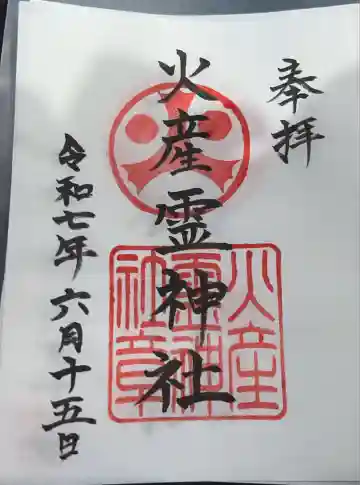 奉拝
火産霊神社
令和七年六月十五日
火産
霊神
社章